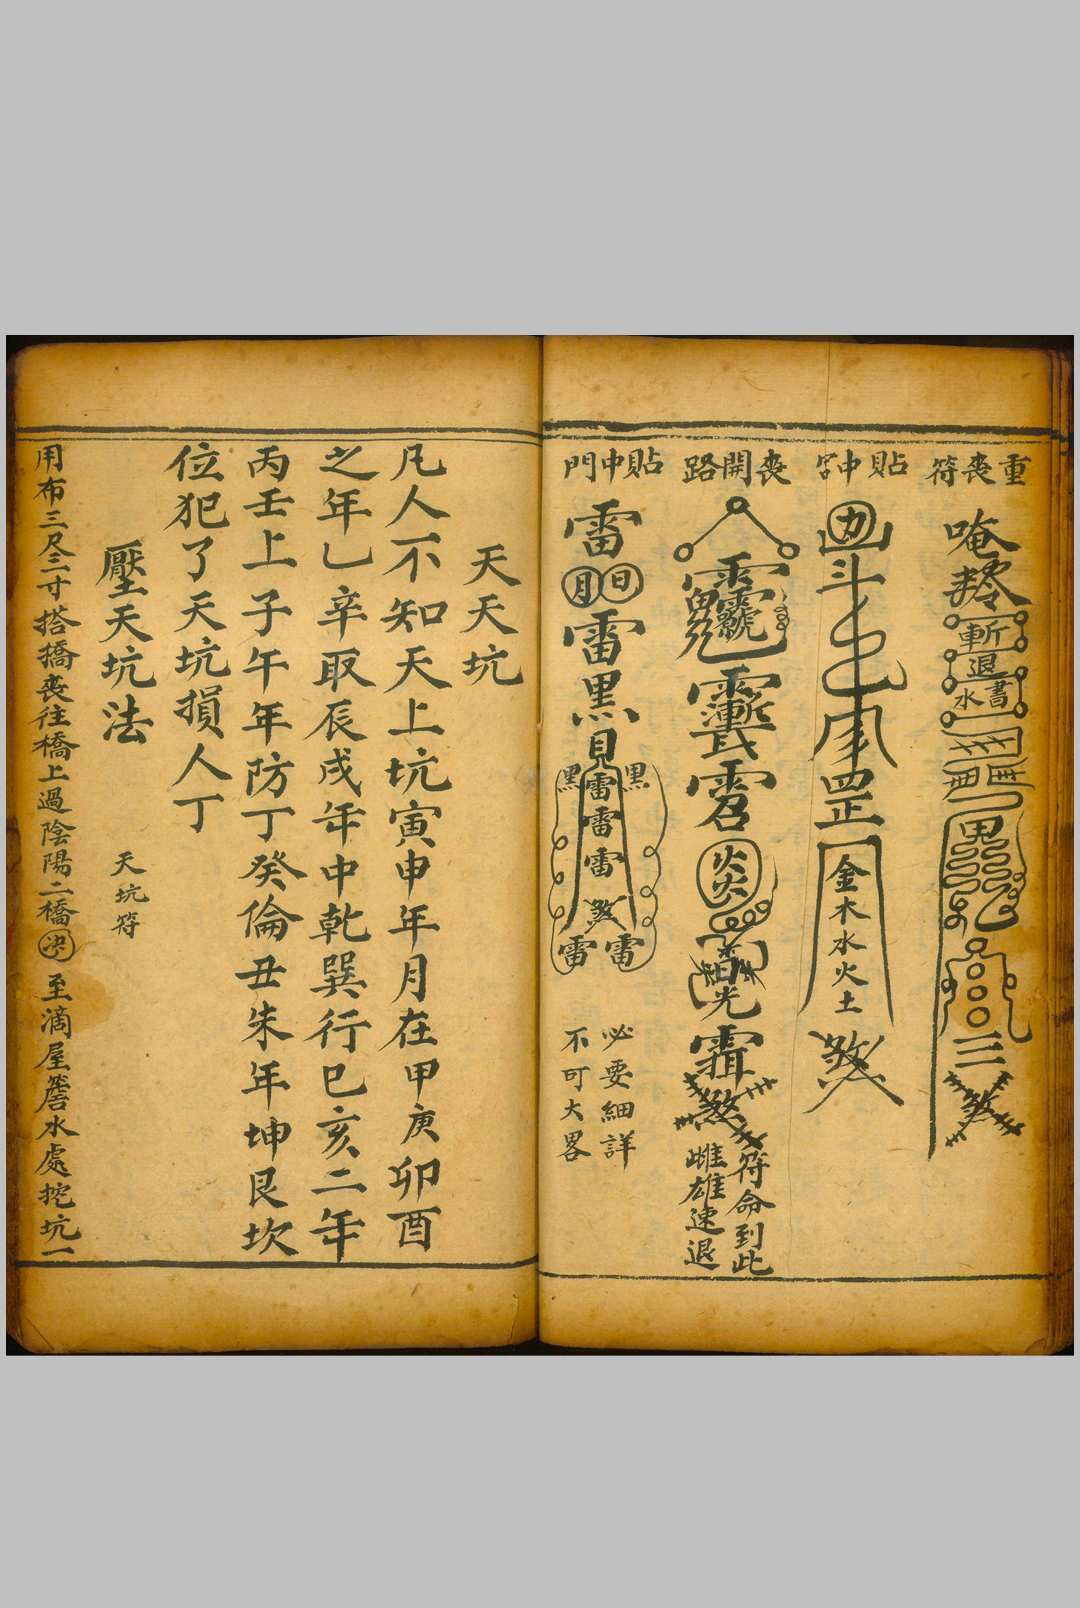 重喪符
唵
斬
退
書
水
鬼
三
煞
貼中宮
斗
罡
金木水火土
煞
喪開路
炎
光
煞
符命到此
雌雄速退
貼中門
雷
日月
雷
黑
見
黑
黑
雷
雷
雷
煞
雷
雷
必要細詳
不可大畧
天天坑
凡人不知天上坑寅申年月在甲庚卯酉
之年乙辛取辰戌年中乾巽行巳亥二年
丙壬上子午年防丁癸倫丑未年坤艮坎
位犯了天坑損人丁
壓天坑法
天坑符
用布三尺三寸搭橋喪往橋上過陰陽二橋決至滴屋簷水處挖坑一